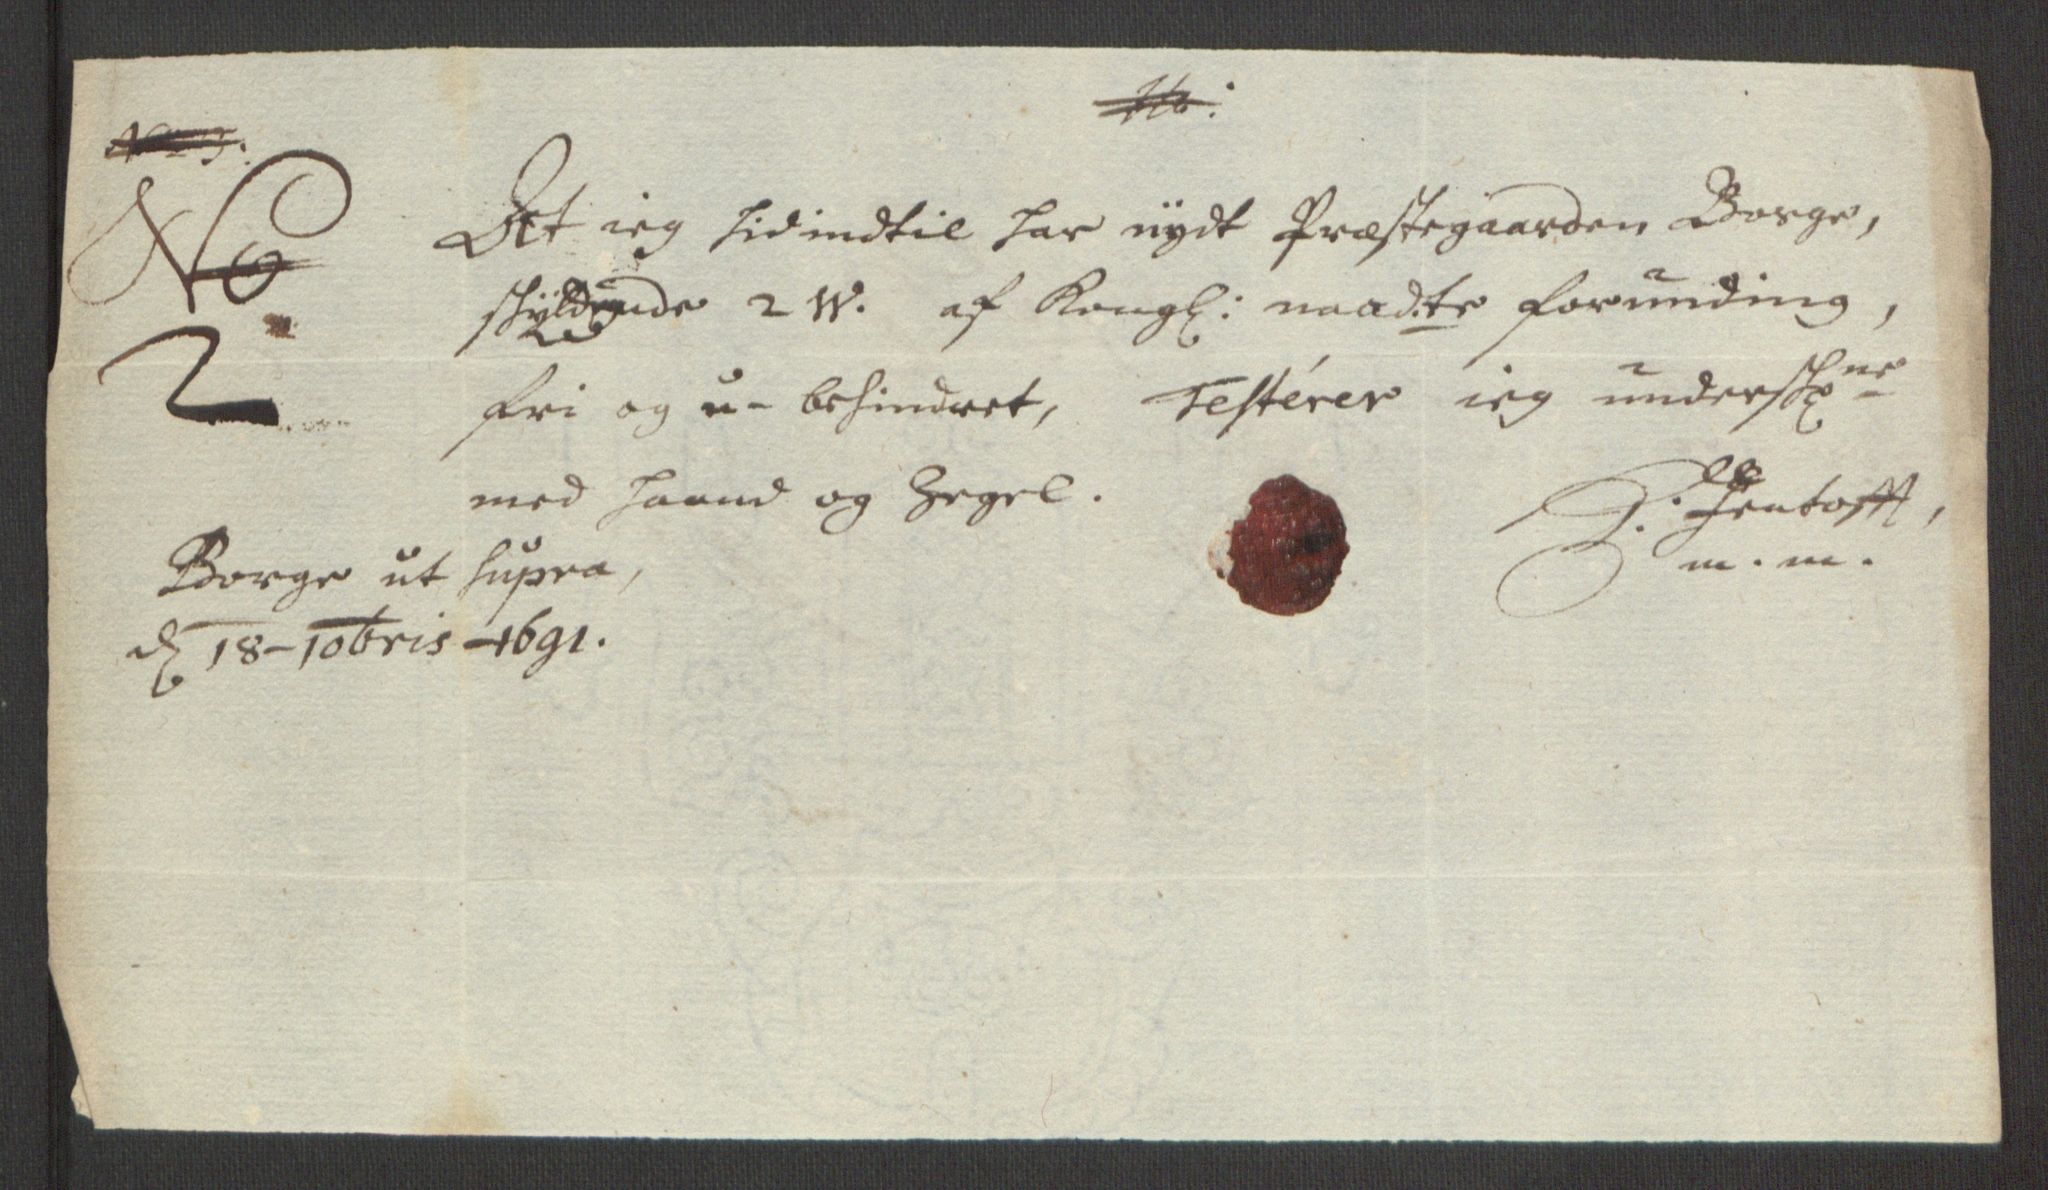 No
2
Att ieg hidindtil har nydt Præstegaarden Borge,
skyldende 2 W. af Kongl: naadte forunding,
fri og u-behindret, Testérer ieg undersk ne
med haand og Zegel.
Jentofft,
m. m.
Borge ut supra,
d 18-10bris 1691.